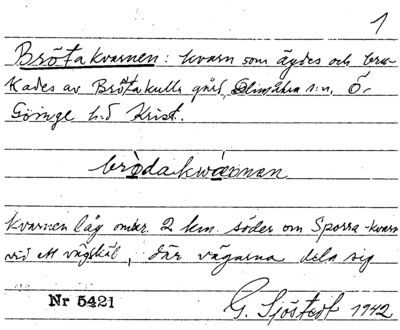 1
Brötakvarnen: kvarn som ägdes och bru-
kades av Brötakulla gård, Glimåkra s:n, Ö.
Göinge h:d Krist.
brödakwarnan
Kvarnen låg omkr. 2 km. söder om Sporra-kvarn
vid ett vägskäl, där vägarna dela sig
Nr 5421
G. Sjöstedt 1942